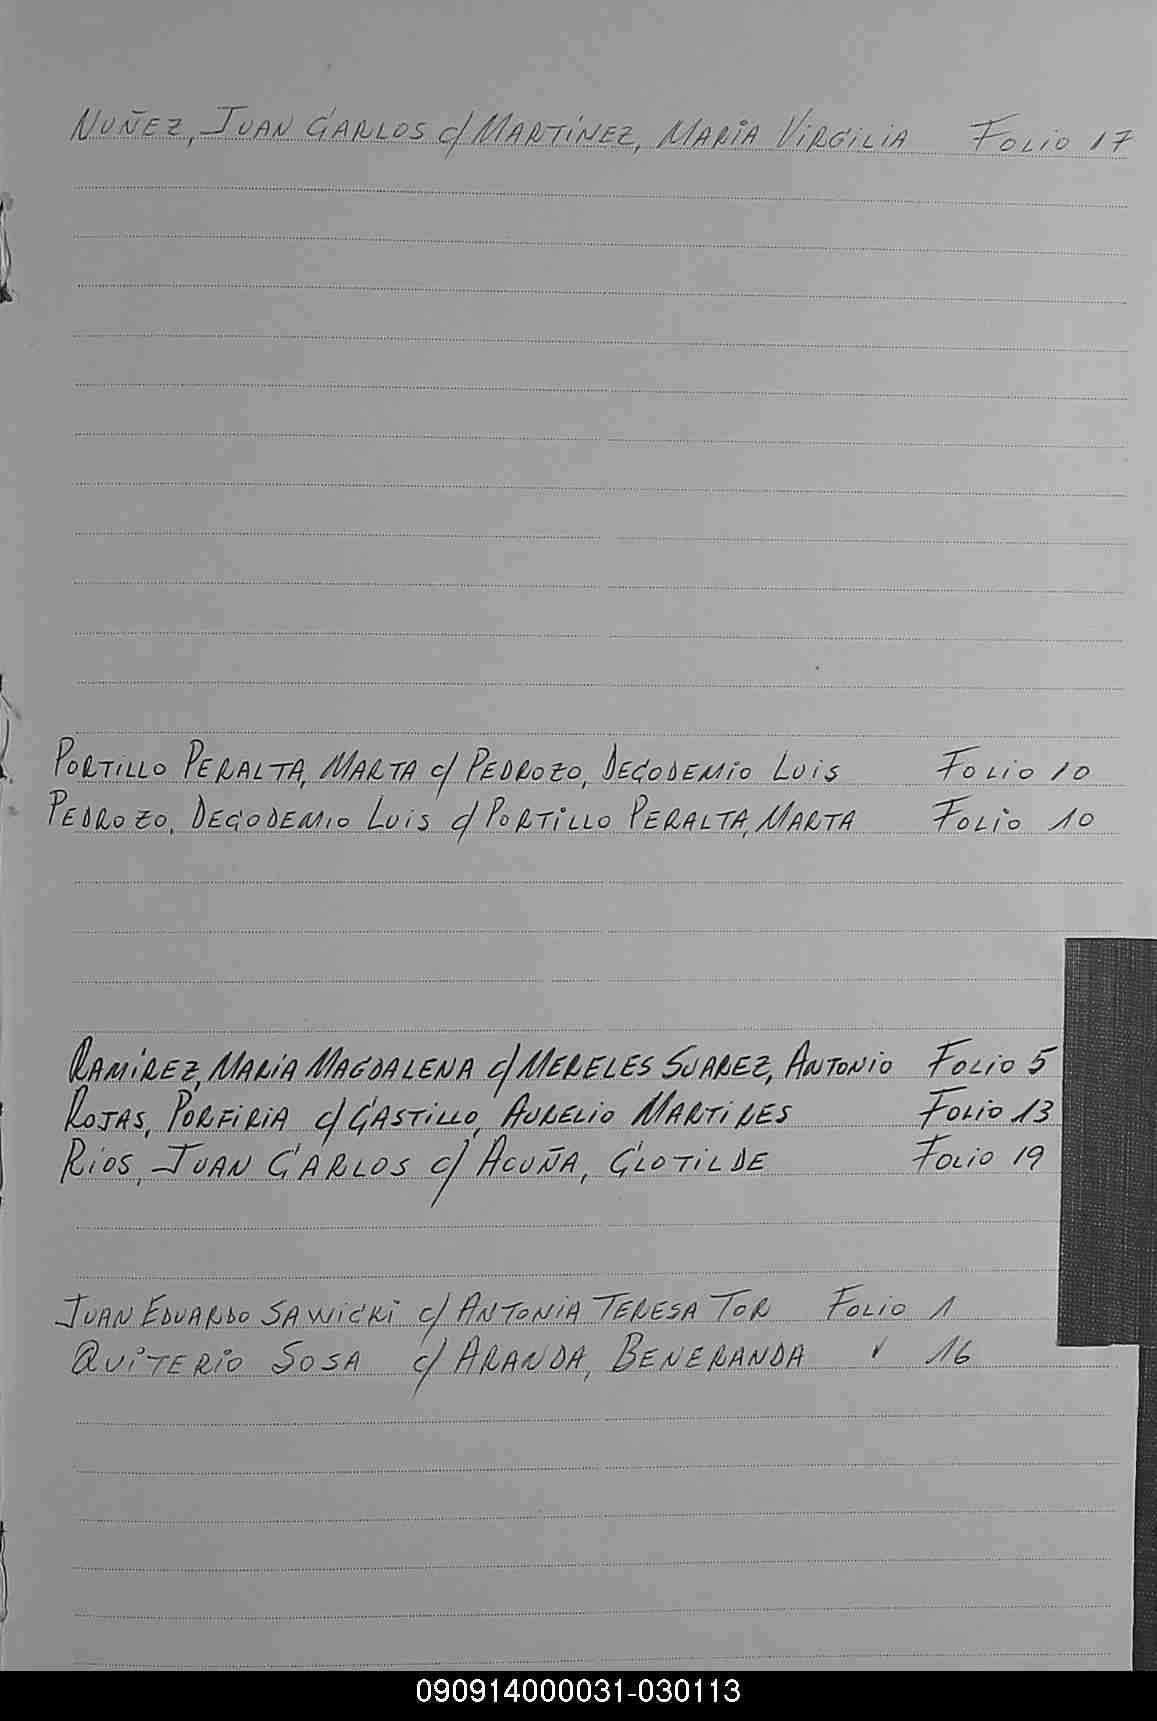 NUÑEZ, JUAN CARLOS c/ MARTÍNEZ, MARIA VIRGILIA FOLIO 17
PORTILLO PERALTA, MARTA c/ PEDROZO, DEGODEMIO LUIS FOLIO 10
PEDROZO, DEGODEMIO LUIS c/ PORTILLO PERALTA, MARTA FOLIO 10
RAMÍREZ, MARIA MAGDALENA c/ MERELES SUAREZ, ANTONIO FOLIO 5
ROJAS, PORFIRIA c/ CASTILLO, AURELIO MARTIRES FOLIO 13
RIOS, JUAN CARLOS c/ ACUÑA, CLOTILDE FOLIO 19
JUAN EDUARDO SAWICKI c/ ANTONIA TERESA TOR FOLIO 1
QUITERIO SOSA c/ ARANDA, BENERANDA " 16
090914000031-030113